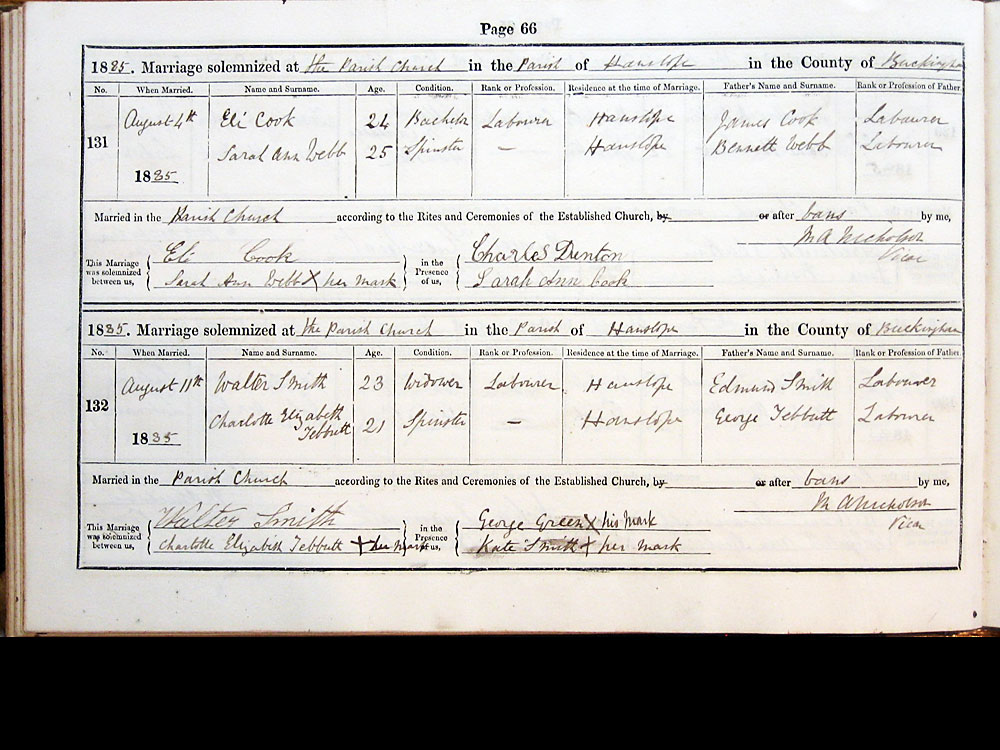 Page 66
1885. Marriage solemnized at the Parish Church in the Parish of Hanslope in the County of Buckingham
No. When Married. Name and Surname. Age. Condition. Rank or Profession. Residence at the time of Marriage. Father's Name and Surname. Rank or Profession of Father.
131 August 4th Eli Cook 24 Bachelor Labourer Hanslope James Cook Labourer
Sarah Ann Webb 25 Spinster — Hanslope Bennett Webb Labourer
1885
Married in the Parish Church according to the Rites and Ceremonies of the Established Church, by or after bans by me,
M A Nicholson
Vicar
This Marriage was solemnized between us, Eli Cook in the Presence of us, Charles Denton
Sarah Ann Webb X her mark Sarah Ann Cook
1885. Marriage solemnized at the Parish Church in the Parish of Hanslope in the County of Buckingham
No. When Married. Name and Surname. Age. Condition. Rank or Profession. Residence at the time of Marriage. Father's Name and Surname. Rank or Profession of Father.
132 August 11th Walter Smith 23 Widower Labourer Hanslope Edmund Smith Labourer
Charlotte Elizabeth Tebbutt 21 Spinster — Hanslope George Tebbutt Labourer
1885
Married in the Parish Church according to the Rites and Ceremonies of the Established Church, by or after bans by me,
M A Nicholson
Vicar
This Marriage was solemnized between us, Walter Smith in the Presence of us, George Green X his mark
Charlotte Elizabeth Tebbutt X her mark Kate Smith X her mark